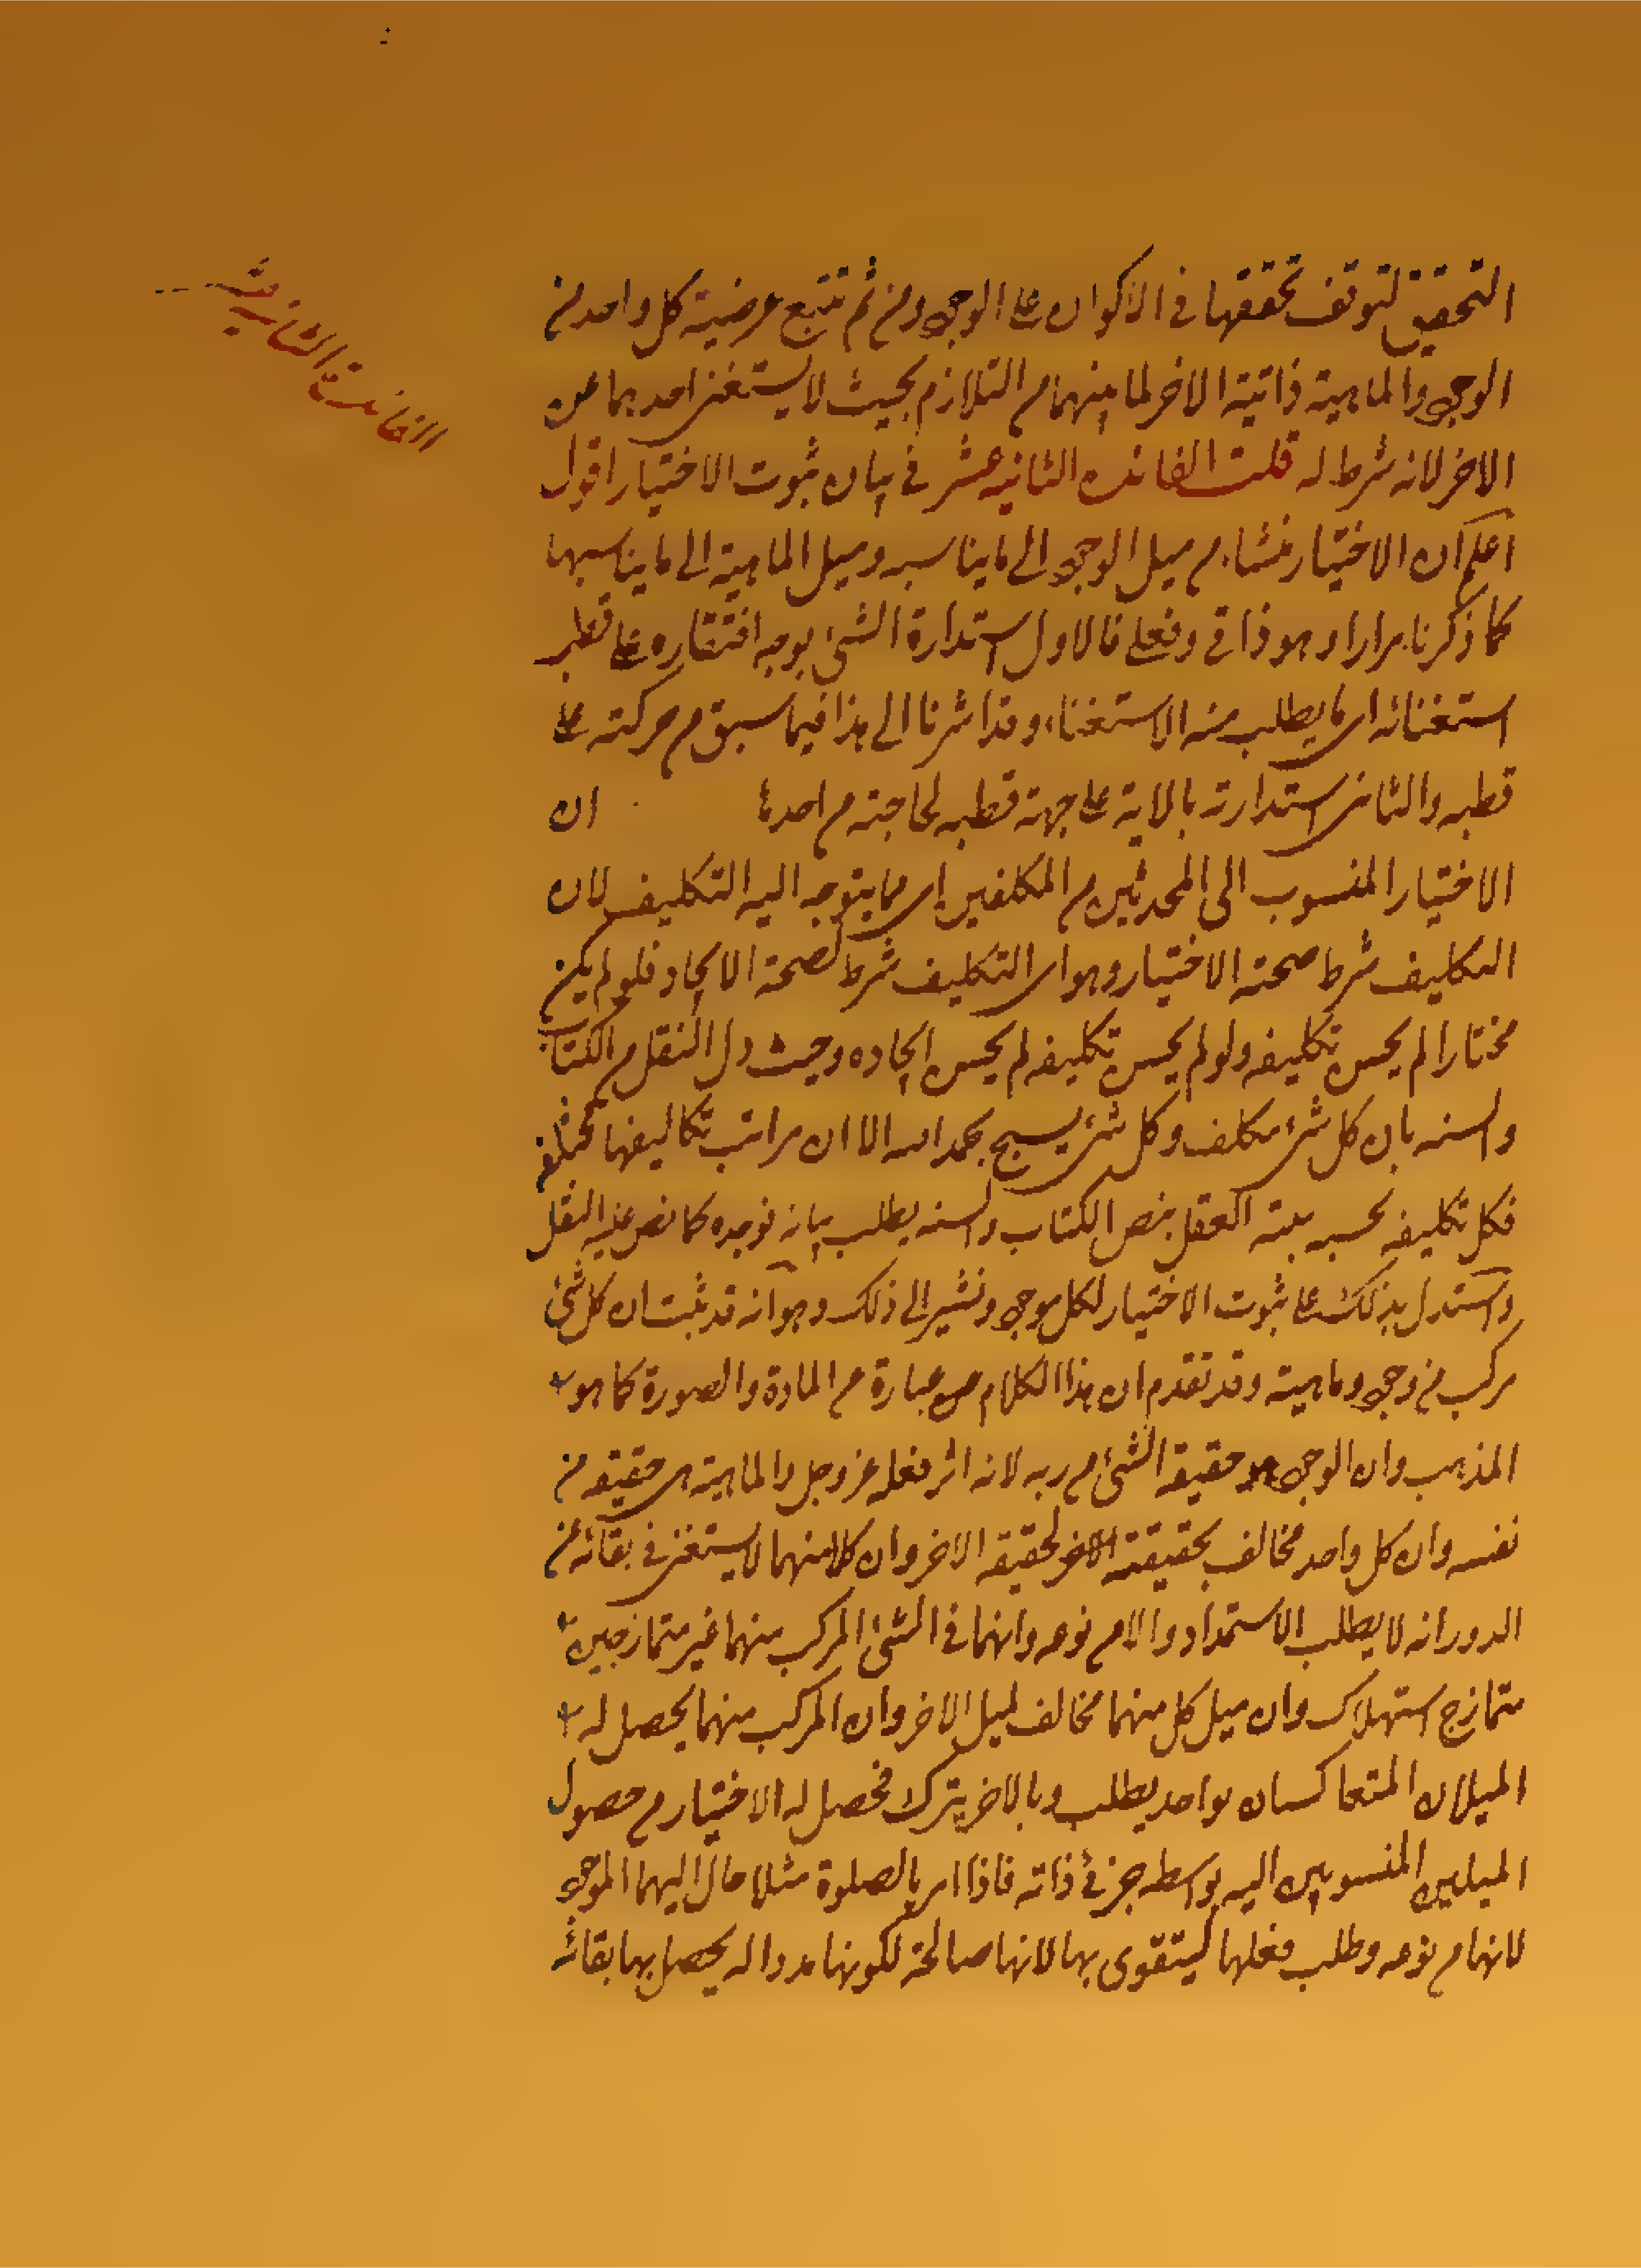 التحقيق لتوقف تحققها في الاكوان على الوجود ومن ثم تتبع عرضية كل واحد من
الوجود والماهية ذاتية الاخر لما بينهما من التلازم بحيث لا يستغنى احدهما عن
الاخر لانه شرط له قلت الفائدة الثانية عشر في بيان ثبوت الاختيار اقول
اعلم ان الاختيار منشاه من ميل الوجود الى ما يناسبه وميل الماهية الى ما يناسبها
كما ذكرنا مرارا وهو ذاتي وفعلي فالاول استدارة الشئ بوجه افتقاره على قطب
استغنائه اى ما يطلب منه الاستغناء وقد اشرنا الى هذا فيما سبق من حركته على
قطبه والثانى استدارته بالاية على جهة قطبه لحاجته من احدها ان
الاختيار المنسوب الى المحدثين من المكلفين اى مما يتوجه اليه التكليف لان
التكليف شرط صحة الاختيار وهو اى التكليف شرط لصحة الايجاد فلو لم يكن
مختارا لم يحسن تكليفه ولو لم يحسن تكليفه لم يحسن ايجاده وحيث دل النقل من الكتاب
والسنه بان كل شئ مكلف وكل شئ يسبح بحمد الله الا ان مراتب تكاليفها مختلفه
فكل تكليفه بحسبه العقل بنص الكتاب والسنه يطلب بيانه نوجده كما نص عليه النقل
واستدل بذلك على ثبوت الاختيار لكل موجود ونشير الى ذلك وهو انه قد ثبت ان كل شئ
مركب من وجود وماهية وقد تقدم ان هذا الكلام عبارة من المادة والصورة كما هو
المذهب وان الوجود هو حقيقة الشئ من ربه لانه اثر فعله عز وجل والماهية هى حقيقه من
نفسه وان كل واحد مخالف بحقيقته لحقيقه الاخر وان كلا منهما لا يستغنى في بقائه من
المدد وانه لا يطلب الاستمداد والا من نوعه وانهما في الشئ المركب منهما غير متمازجين
متمازج استهلاك وان ميل كل منهما مخالف لميل الاخر وان المركب منهما يحصل له
الميلان المتعاكسان بواحد يطلب وبالاخر يترك فحصل له الاختيار من حصول
الميلين المنسوبين اليه بواسطه جزئى ذاته فاذا امر بالصلوة مثلا مال اليهما الوجود
لانهما من نوعه وطلب فعلها ليتقوى بها لانها صالحة لكونها مددا له يحصل بها بقائه
الفائدة الثانية عشر